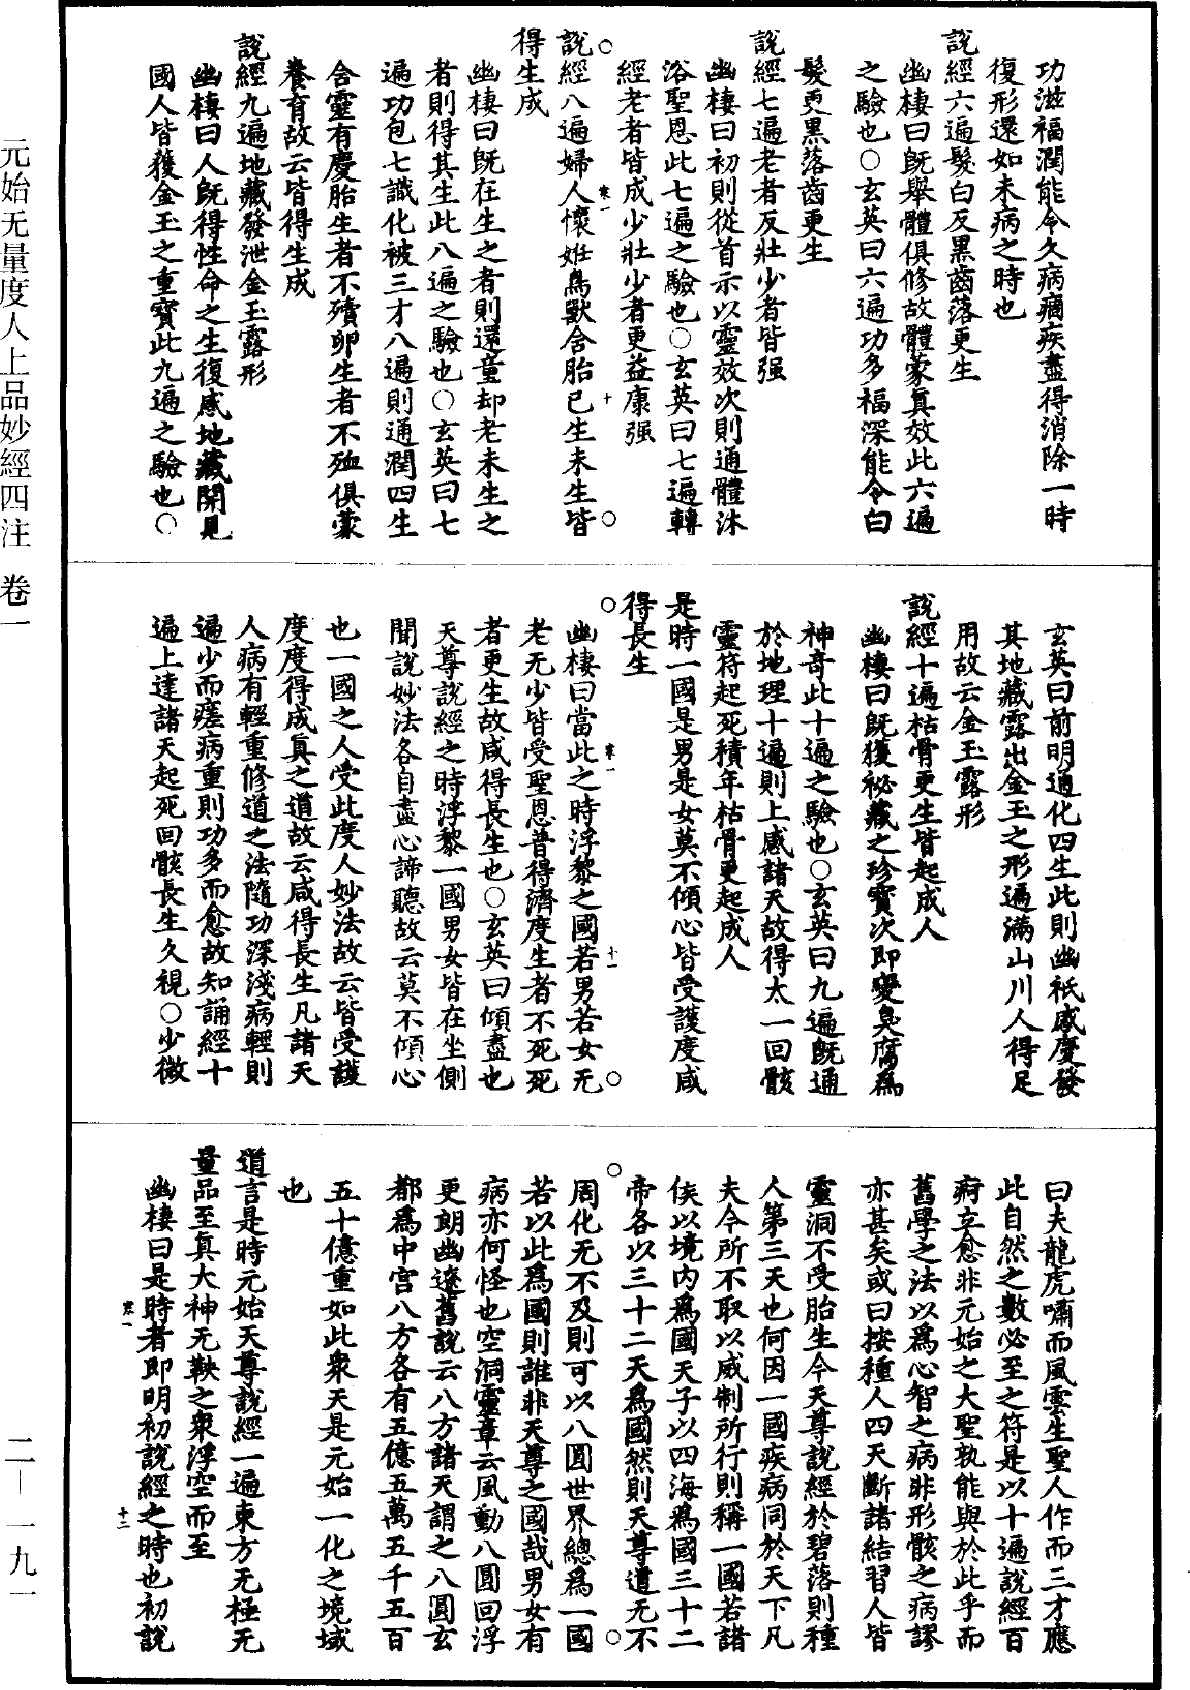 功滋福潤能令久病痼疾盡得消除一時
復形還如未病之時也
說經六遍髮白反黑齒落更生
幽棲曰既舉體俱修故體蒙真效此六遍
之驗也○玄英曰六遍功多福深能令白
髮更黑落齒更生
說經七遍老者反壯少者皆强
幽棲曰初則從首示以靈效次則通體沐
浴聖恩此七遍之驗也○玄英曰七遍轉
經老者皆成少壯少者更益康强
說經八遍婦人懷姙鳥獸含胎已生未生皆
得生成
幽棲曰既在生之者則還童却老未生之
者則得其生此八遍之驗也○玄英曰七
遍功包七識化被三才八遍則通潤四生
含靈有慶胎生者不殰卵生者不殈俱蒙
養育故云皆得生成
說經九遍地藏發泄金玉露形
幽棲曰人既得性命之生復感地藏開見
國人皆獲金玉之重寶此九遍之驗也○
玄英曰前明通化四生此則幽祇感慶發
其地藏露出金玉之形遍滿山川人得足
用故云金玉露形
說經十遍枯骨更生皆起成人
幽棲曰既獲祕藏之珍寶次即變臭腐爲
神奇此十遍之驗也○玄英曰九遍既通
於地理十遍則上感諸天故得太一回骸
靈符起死積年枯骨更起成人
是時一國是男是女莫不傾心皆受護度咸
得長生
幽棲曰當此之時浮黎之國若男若女无
老无少皆受聖恩普得濟度生者不死死
者更生故咸得長生也○玄英曰傾盡也
天尊說經之時浮黎一國男女皆在坐側
聞說妙法各自盡心諦聽故云莫不傾心
也一國之人受此度人妙法故云皆受護
度度得成真之道故云咸得長生凡諸天
人病有輕重修道之法隨功深淺病輕則
遍少而瘥病重則功多而愈故知誦經十
遍上達諸天起死回骸長生久視○少微
曰夫龍虎嘯而風雲生聖人作而三才應
此自然之數必至之符是以十遍說經百
痾立愈非元始之大聖孰能與於此乎而
舊學之法以爲心智之病非形骸之病謬
亦甚矣或曰按種人四天斷諸結習人皆
靈洞不受胎生今天尊說經於碧落則種
人第三天也何因一國疾病同於天下凡
夫今所不取以威制所行則稱一國若諸
侯以境內爲國天子以四海爲國三十二
帝各以三十二天爲國然則天尊道无不
周化无不及則可以八圓世界總爲一國
若以此爲國則誰非天尊之國哉男女有
病亦何怪也空洞靈章云風動八圓回浮
更朗幽遼舊說云八方諸天謂之八圓玄
都爲中宫八方各有五億五萬五千五百
五十億重如此衆天是元始一化之境域
也
道言是時元始天尊說經一遍東方无極无
量品至真大神无鞅之衆浮空而至
幽棲曰是時者即明初說經之時也初說
寒一
十
寒一
十一
寒一
十二
元始无量度人上品妙經四注　卷一
二—一九一